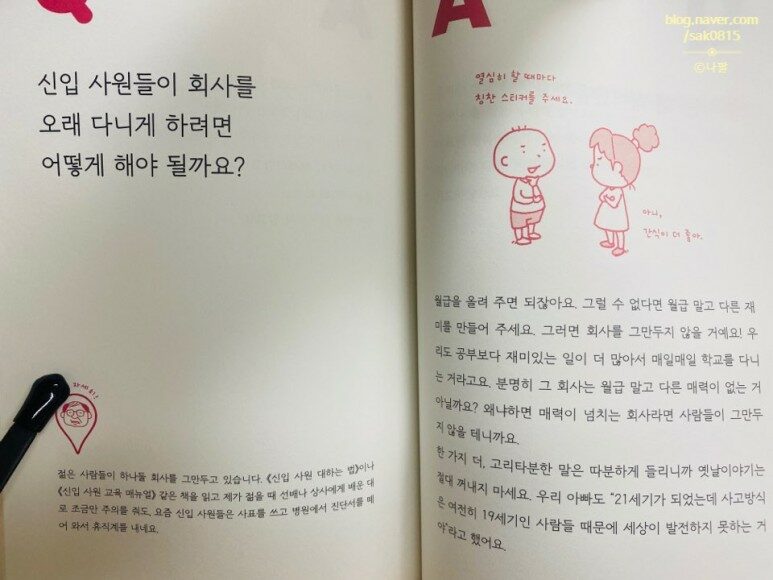 Q
신입 사원들이 회사를
오래 다니게 하려면
어떻게 해야 될까요?
젊은 사람들이 하나둘 회사를 그만두고 있습니다. 《신입 사원 대하는 법》이나
《신입 사원 교육 매뉴얼》 같은 책을 읽고 제가 젊을 때 선배나 상사에게 배운 대
로 조금만 주의를 줘도, 요즘 신입 사원들은 사표를 쓰고 병원에서 진단서를 떼
어 와서 휴직계를 내네요.
A
blog.naver.com
/sak0815
열심히 할 때마다
칭찬 스티커를 주세요.
아니,
간식이 더 좋아.
월급을 올려 주면 되잖아요. 그럴 수 없다면 월급 말고 다른 재
미를 만들어 주세요. 그러면 회사를 그만두지 않을 거예요! 우
리도 공부보다 재미있는 일이 더 많아서 매일매일 학교를 다니
는 거라고요. 분명히 그 회사는 월급 말고 다른 매력이 없는 거
아닐까요? 왜냐하면 매력이 넘치는 회사라면 사람들이 그만두
지 않을 테니까요.
한 가지 더, 고리타분한 말은 따분하게 들리니까 옛날이야기는
절대 꺼내지 마세요. 우리 아빠도 “21세기가 되었는데 사고방식
은 여전히 19세기인 사람들 때문에 세상이 발전하지 못하는 거
야”라고 했어요.